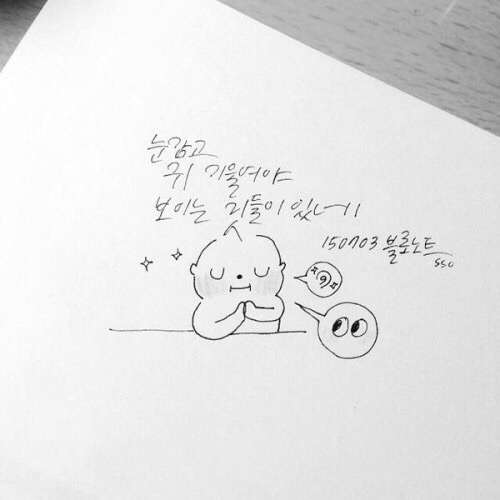 눈감고
귀 기울여야
보이는 있네
150703 블로노트
sso